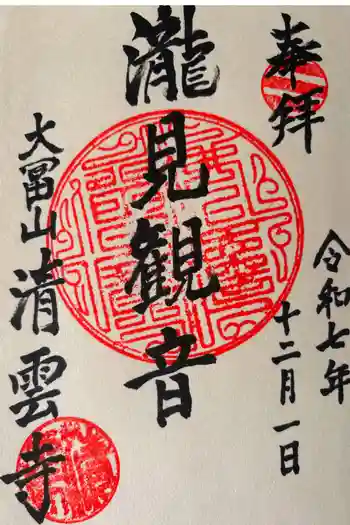 奉拝
令和七年
十二月一日
瀧見観音
大冨山
清雲寺